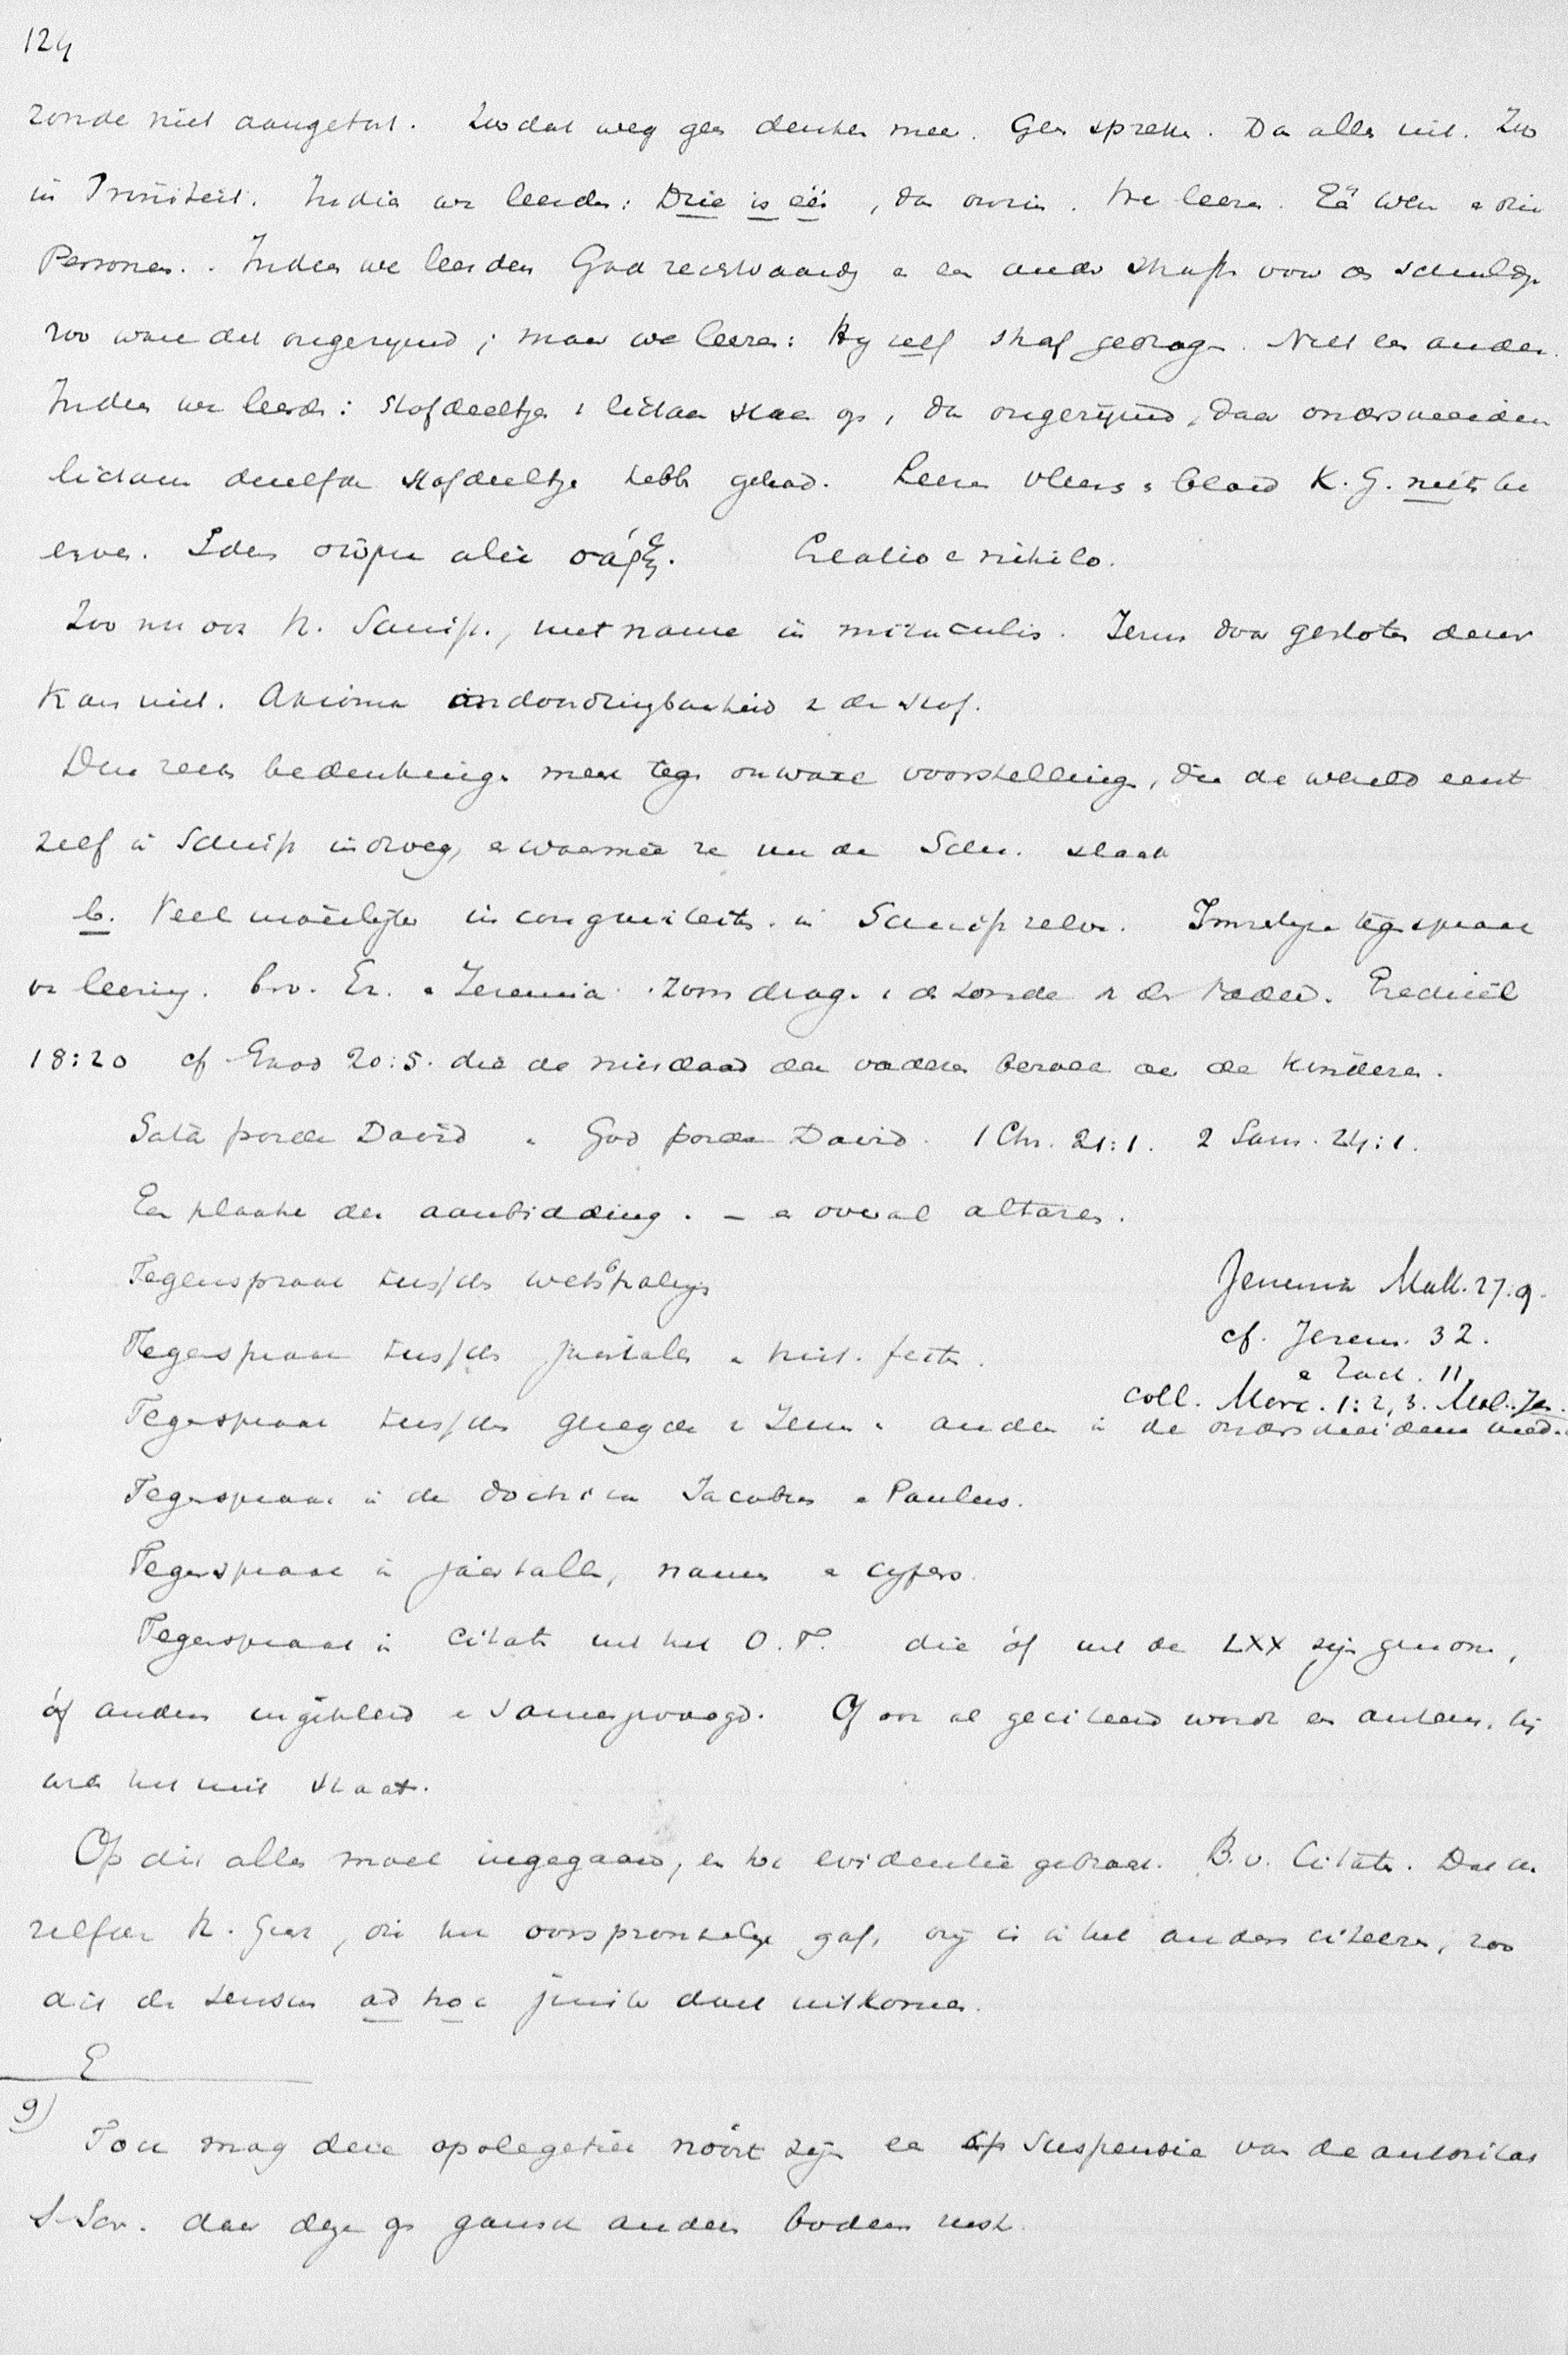 124
zonde niet aangetast. Zoodat weg gen denken mee. Gen spreken. Da alles niet. Zoo
in Triniteit. Indien we leerden: Drie is één, dan onzin. We leeren. Eén wezen e drie
Personen. Indien we leerden God rechtvaardig e een ander straft voor de schuldige
zoo ware dit ongerijmd; maar we leeren: Hij zelf straf gedragen. Niet een ander.
Indien we leerden: stofdeeltjes lichaam staan op, dan ongerijmd, daar onderscheiden
lichamen dezelfde stofdeeltjes hebben gehad. Leeren vleesch bloed K. G. niet be
erven. Idem σῶμα alia σάρξ. Creatio e nihilo.
Zoo nu ook H. Schrift., met name in miraculis. Jezus door gesloten deur
kan niet. Axioma ondoordringbaarheid der stof.
Deze reeks bedenkingen meest tegen onware voorstellingen, die de wereld eerst
zelf in Schrift indroeg, e waarmee ze nu de Schr. slaat
b. Veel moeielijker incongruiteiten in Schrift zelve. Innerlijke tegenspraak
in leering. bv. Ez. e Jeremia zoon drage de zonde der vaderen. Ezechiël
18:20 cf Exod 20:5. die de misdaad der vaderen bezoek aan de kinderen.
Satan porde David e God porde David. 1 Chr. 21:1. 2 Sam. 24:1.
Een plaats der aanbidding. – e overal altaren.
Tegenspraak tusschen wetsbepalingen
Jeremia Matt. 27:9.
Tegenspraak tusschen jaartallen e hist. feiten.
cf. Jerem. 32.
e Zach. 11
coll. Marc. 1:2, 3. Mal. Jes.
Tegenspraak tusschen gezegden Jezus e anderen in de onderscheidene
Tegenspraak in de doctrina Jacobus e Paulus.
Tegenspraak in jaartallen, namen e cyfers.
Tegenspraak in citaten uit het O.T. die óf uit de LXX zijn genomen,
óf anders ingekleed e samengevoegd. Of ook al geciteerd wordt een auteur, bij
wien het niet staat.
Op dit alles moet ingegaan, en tot evidentie gebracht. B.v. Citaten. Dat de
zelfde H. Geest, die het oorspronkelijke gaf, vrij is in het anders citeeren, zoo
dit de sensus ad hoc juist doet uitkomen.
E
9)
Toch mag deze apologetiek nooit zijn een suspensie van de autoritas
S. Scr. daar deze op gansch anderen bodem rust.